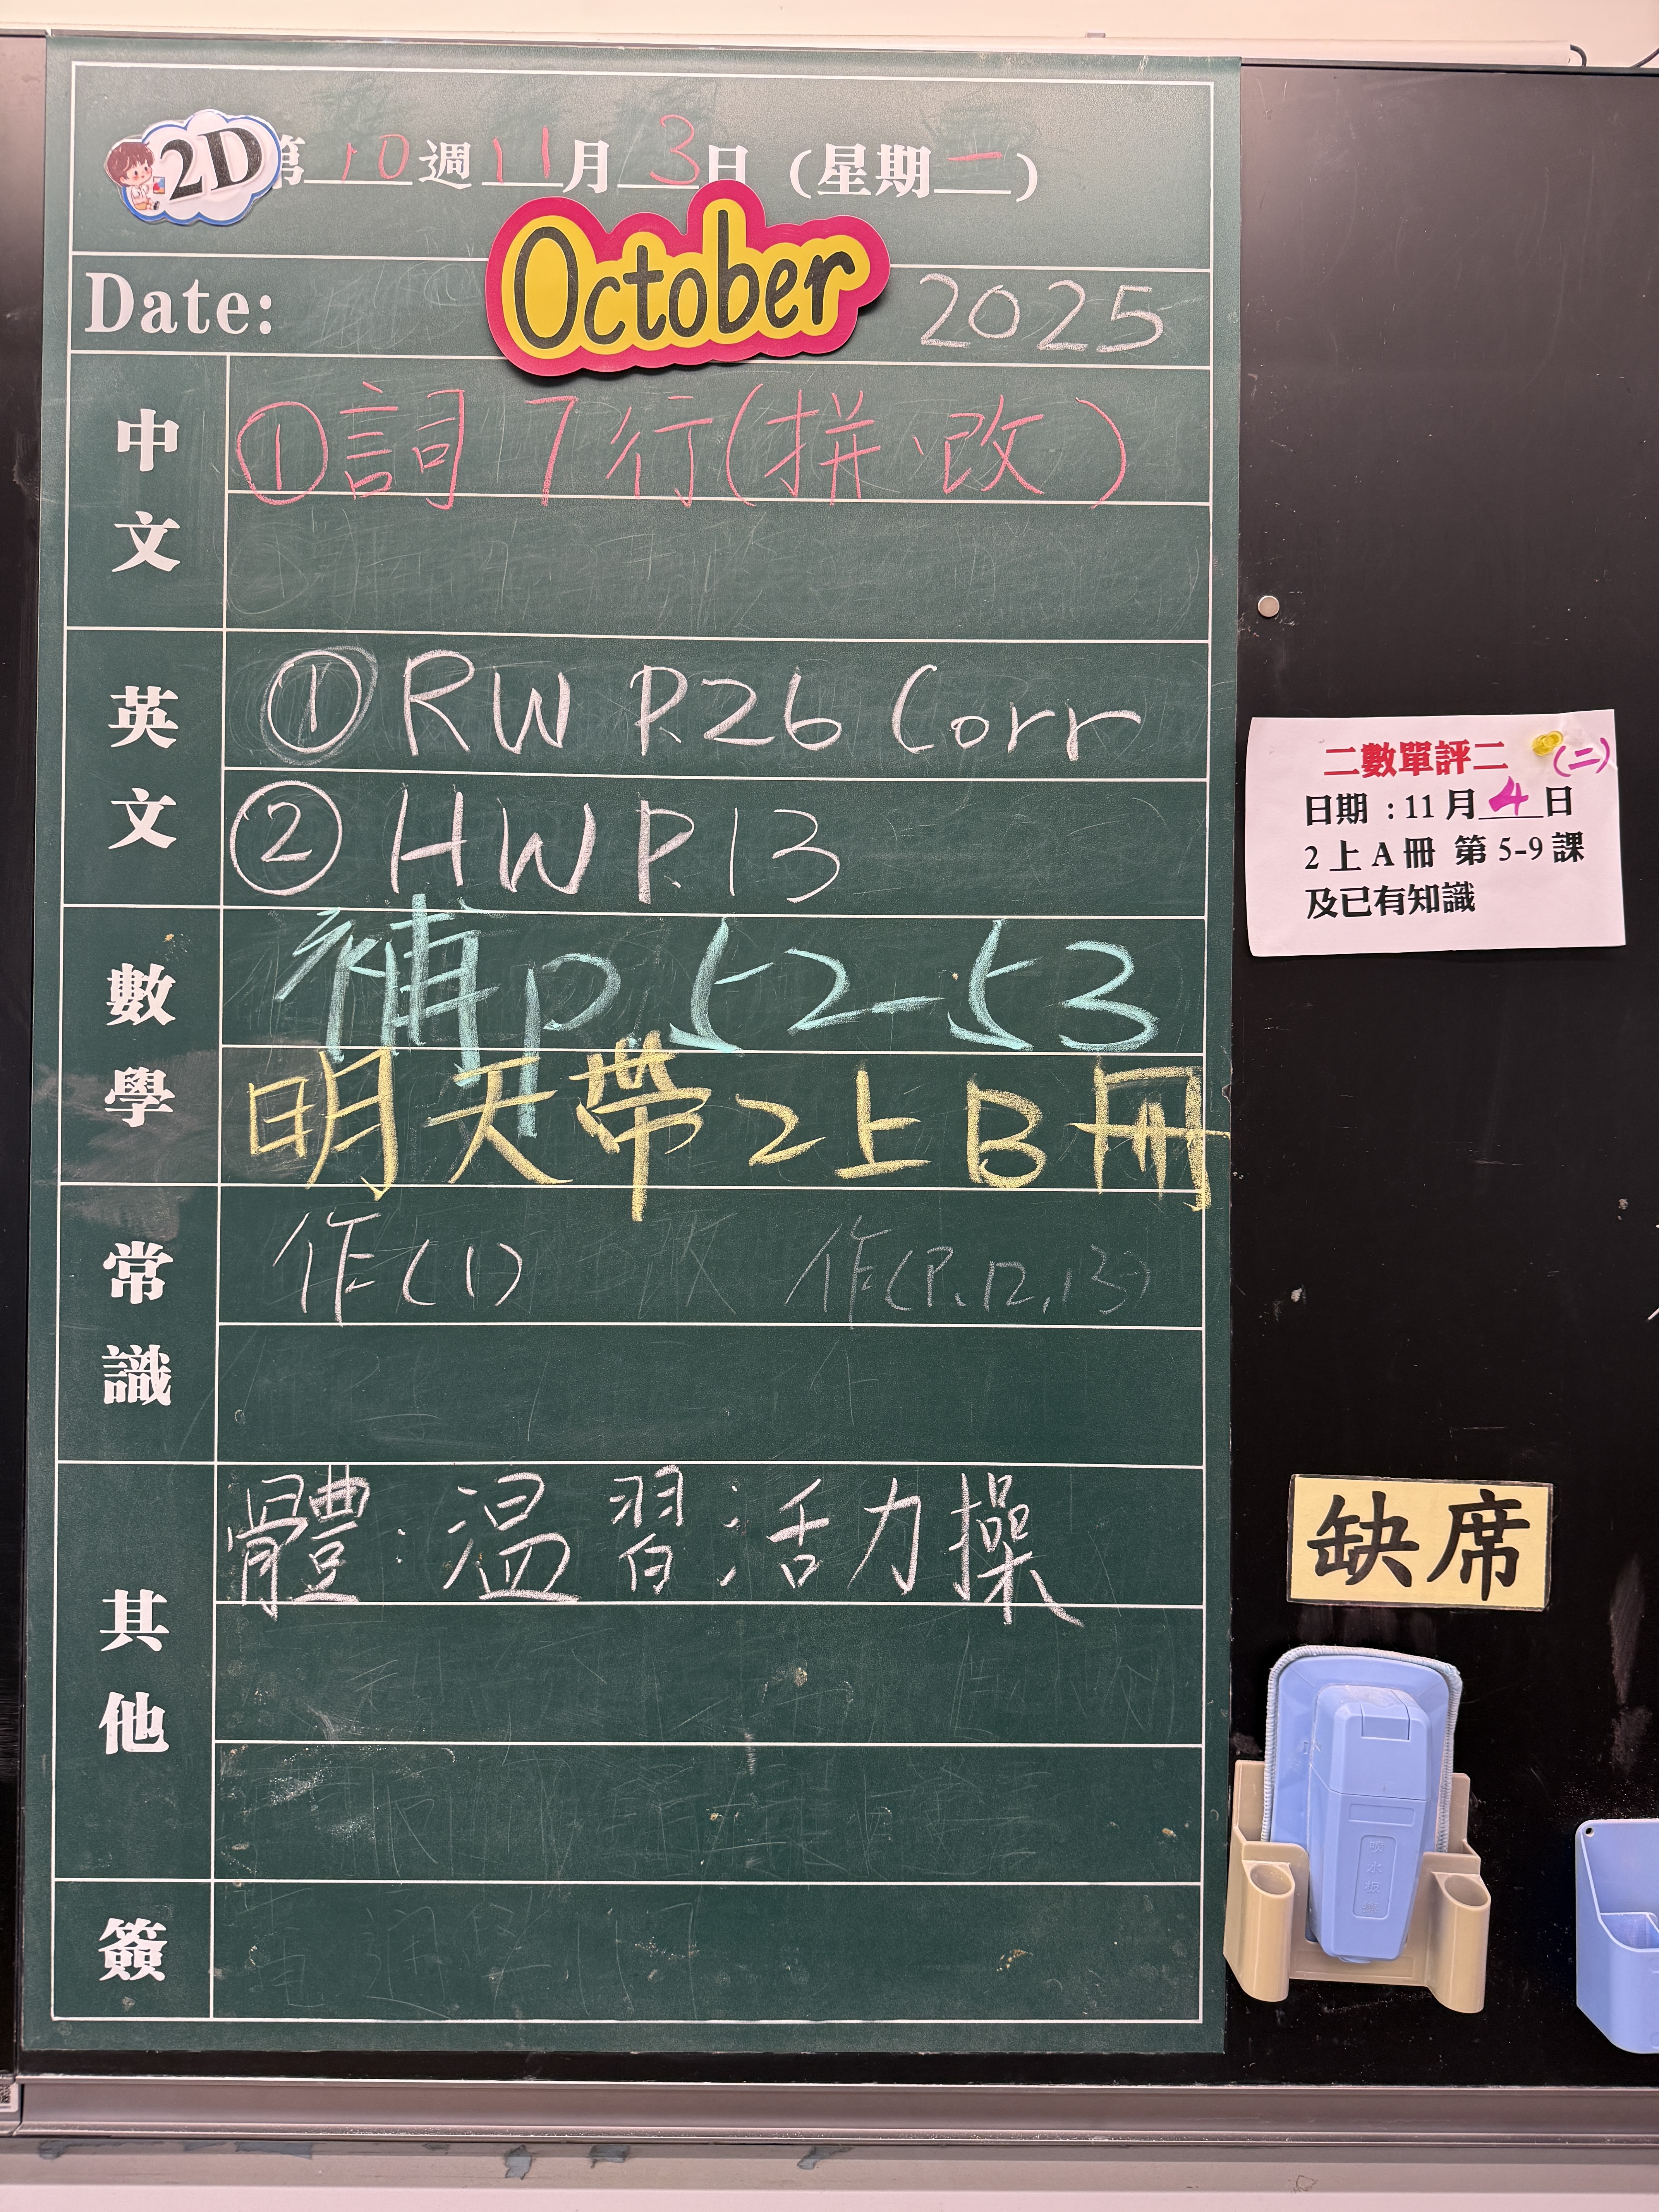 2D
第10週11月3日(星期一)
Date: October 2025
中文
①詞7行(拼、改)
英文
①RW P.26 Corr
②HW P.13
數學
補p 52-53
明天帶2上B冊
常識
作(1) 改 作(P.12,13)
其他
體:溫習活力操
簽
二數單評二 (二)
日期:11月4日
2上A冊 第5-9課
及已有知識
缺席